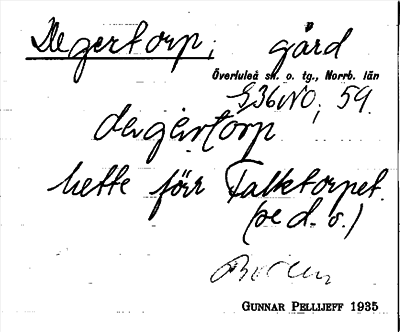 Degertorp, gård
Överluleå sn. o. tg., Norrb. län
G36NO, 59.
hette förr Falktorpet.
(se d. o.)
Boden
GUNNAR PELLIJEFF 1935